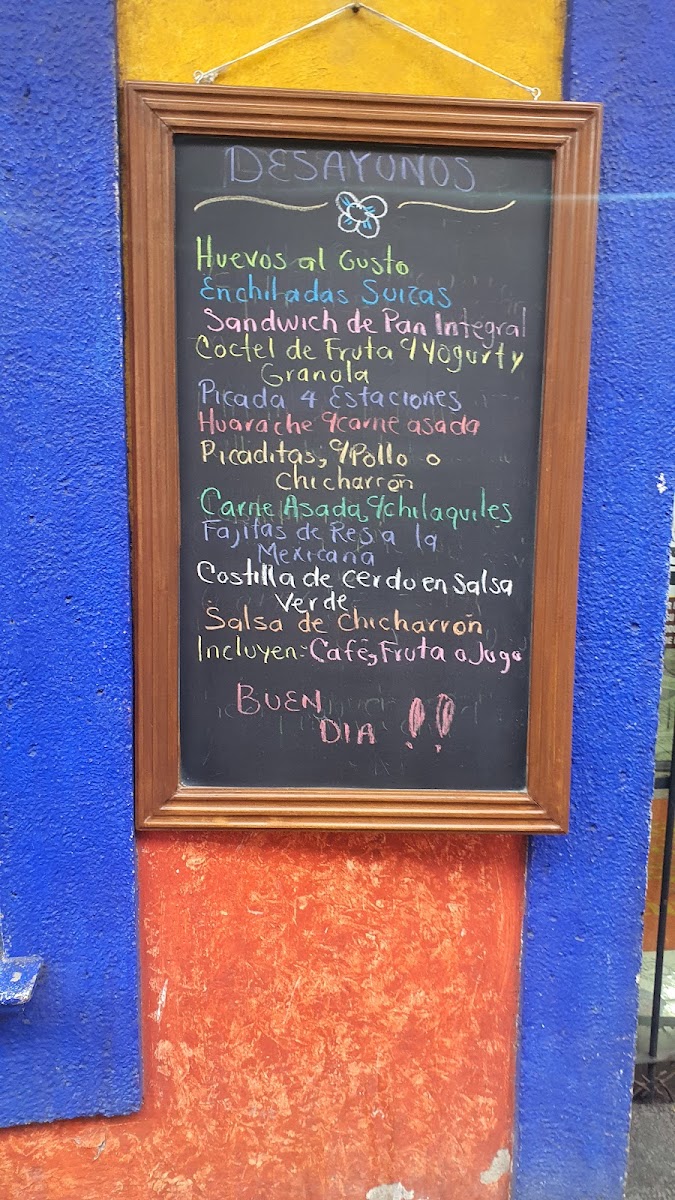 DESAYUNOS
Huevos al Gusto
Enchiladas Suizas
Sandwich de Pan Integral
Coctel de Fruta c/Yogurt y
Granola
Picada 4 Estaciones
Huarache c/carne asada
Picaditas, c/Pollo o
chicharrón
Carne Asada, c/chilaquiles
Fajitas de Res a la
Mexicana
Costilla de cerdo en Salsa
Verde
Salsa de chicharrón
Incluyen: Café, Fruta o Jugo
BUEN
DIA !!